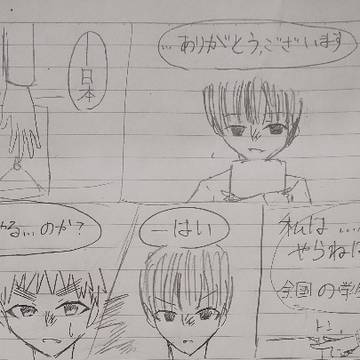 …ありがとう、ございます
―日本
私は……
やらね
全国の学
―はい
る…のか?